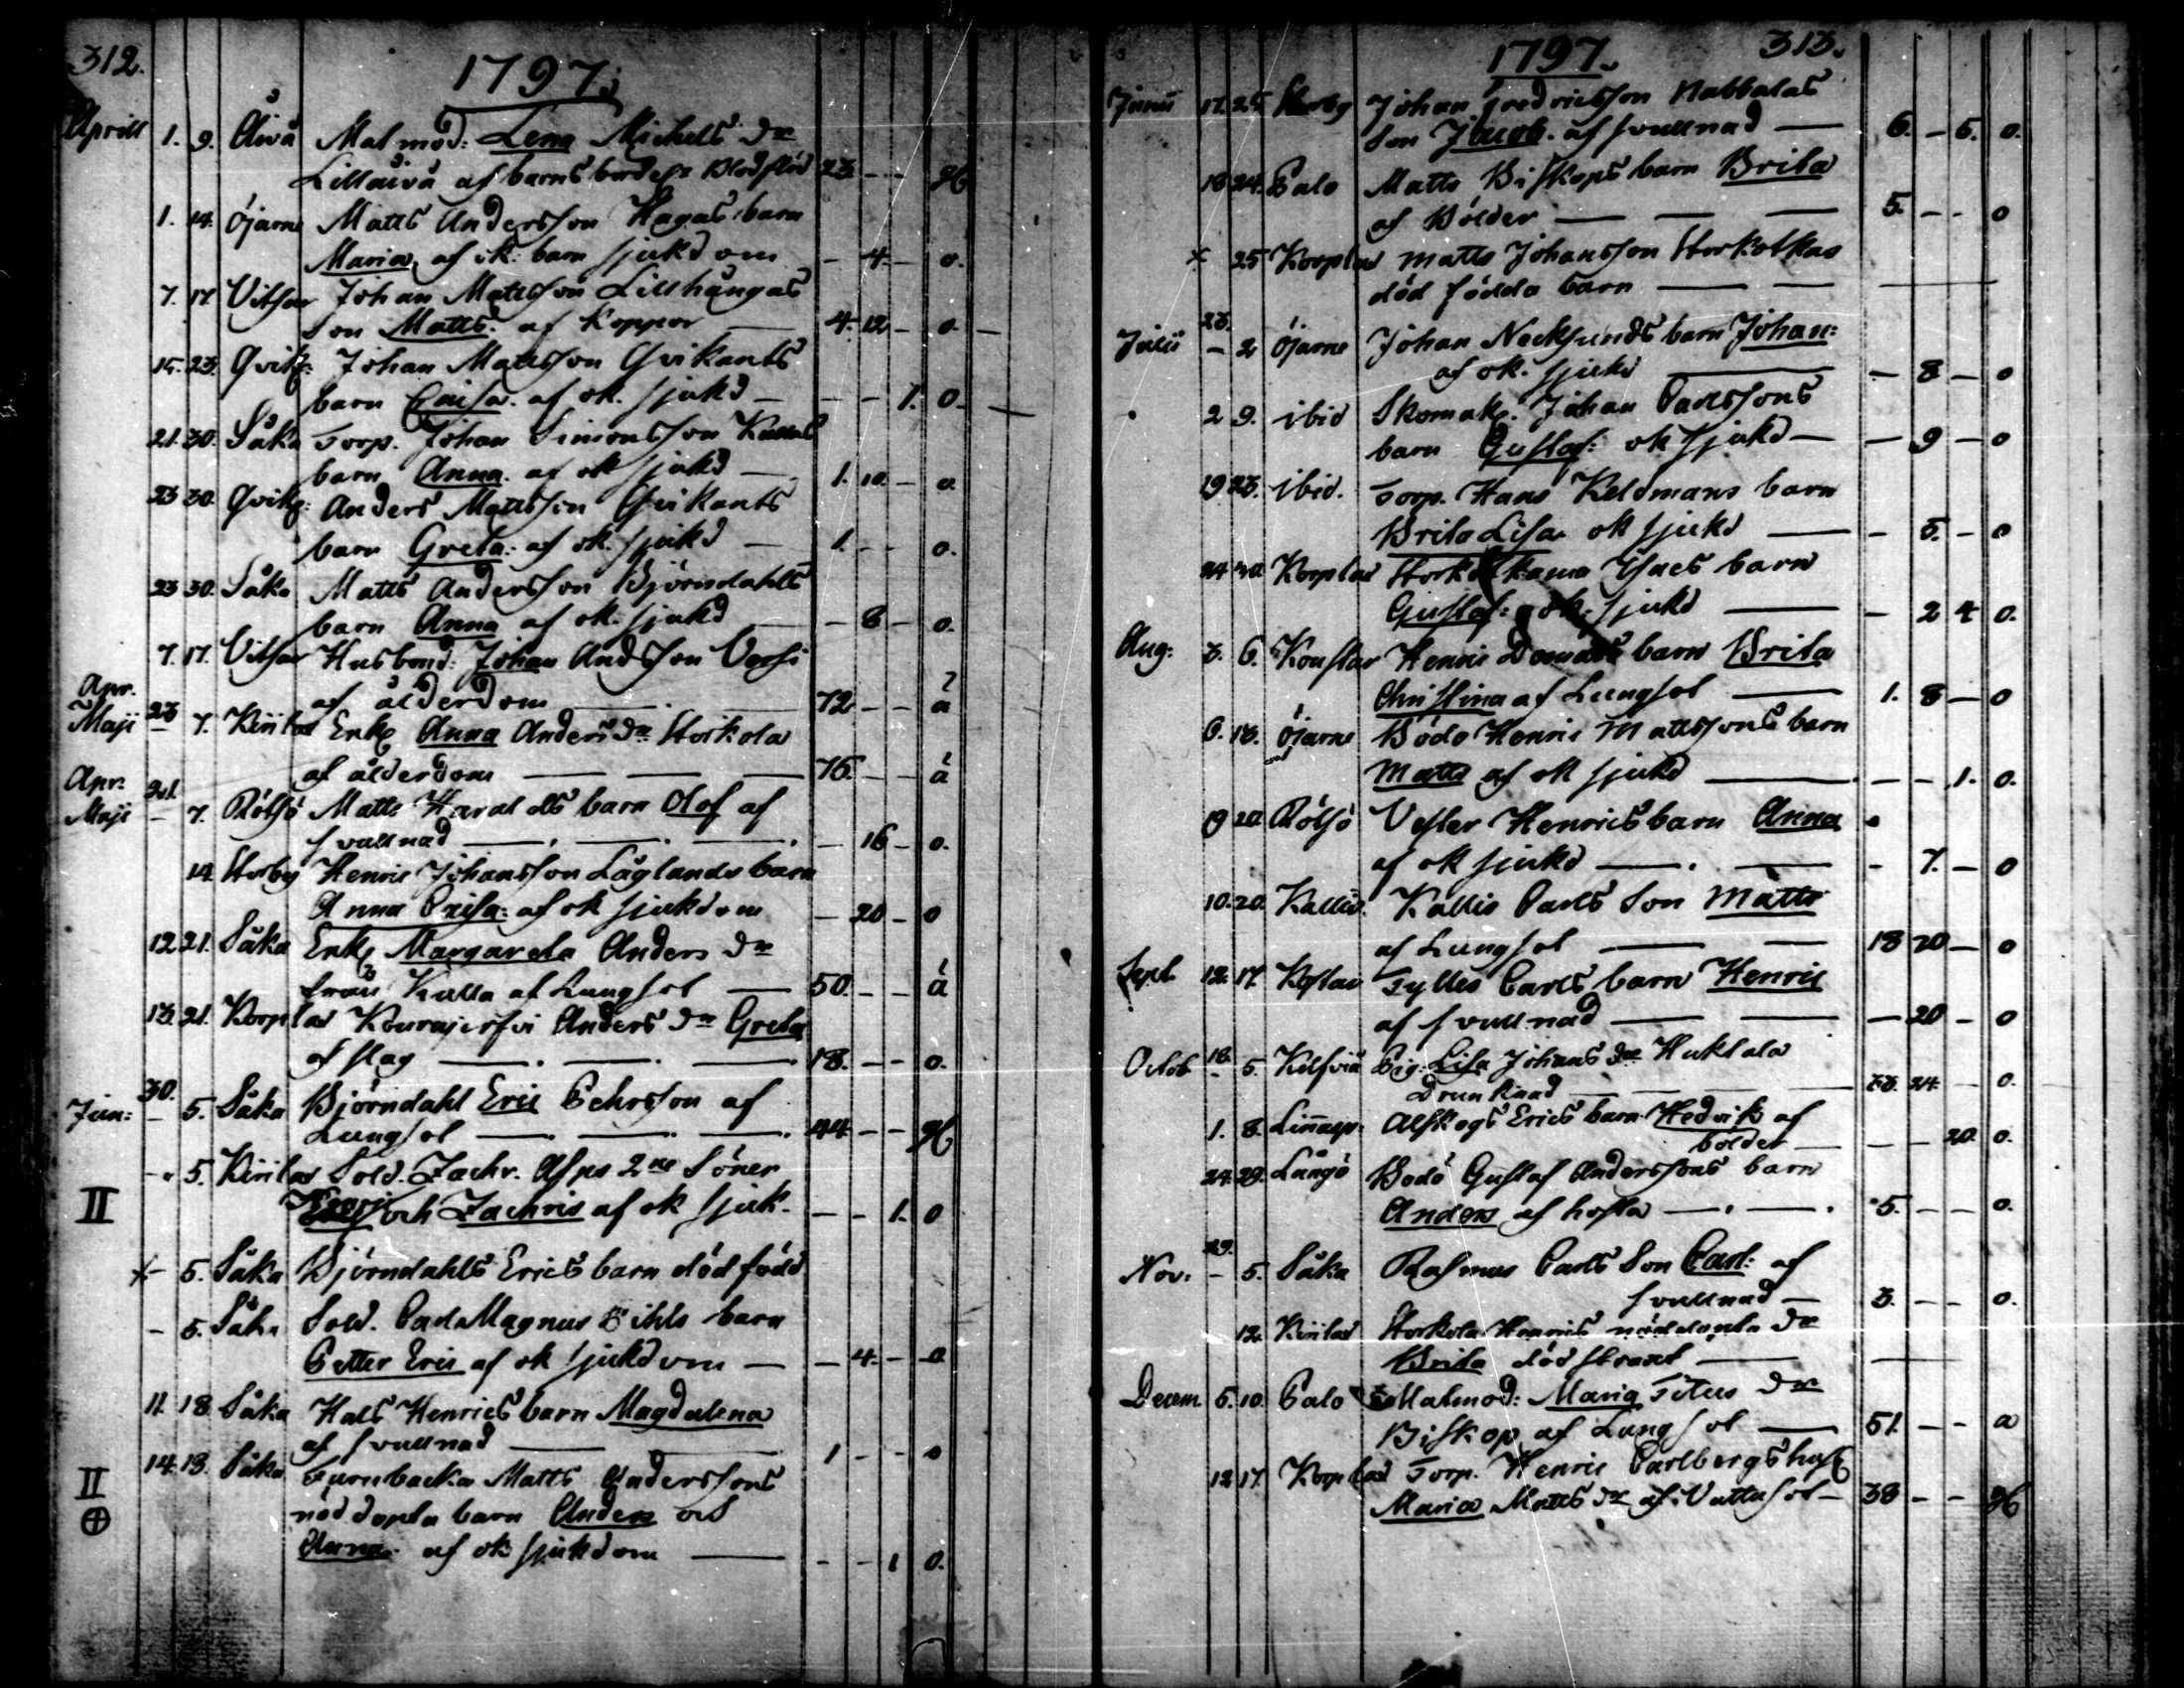 312.
1797.
Aprill 1. 9. Åivå Matmod: Lena Michels dr
Lillåivå af barnsbördesz Blodflöd 23 - - g
1. 14. Öjarne Matts Andersson Hagas barn
Maria, af ok: barn sjukdom - 4 - o.
7. 17 Vitsar Johan Mattsson Lillhångas
son Matts. af Koppor 4. 12 - o.
15. 23. Qvik: Johan Mattsson Qvikants
barn Caisa. af ok. sjukd - - - 1. o.
21. 30. Såka Torp. Johan Simonsson Kallas
barn Anna. af ok sjukd - 1. 10. - o.
23 30. Qvik: Anders Mattsson Qvikants
barn Greta: af ok. sjukd - 1. - - o.
23 30. Såka Matts Andersson Björndahls
barn Anna af ok. sjukd - 8 - o.
7. 17. Vitsar Husbond: Johan Andsson
af ålderdom 72 - - å
Apr. 23
Maji - 7. Kiirlax Enk Anna Anders dr Storkola
af ålderdom 76. - - å
Apr: 21.
Maji - 7. Rölsö Matts Haralds barn Olof af
svullnad - 16 - o.
14 Storby Henric Johansson Låglands barn
Anna Caisa: af ok sjukdom - 20 - o
12 21. Såka Enk Margareta Anders dr
från Kalla af Lungsot 50. - - å
13. 21. Korplax Anders dr Greta
af slag 18. - - o.
30.
Jun: - 5. Såka Björndahl Eric Pehrsson af
Lungsot 44 - - g
- 5. Kiirlax Sold. Zachr. Asps 2ne Söner
II och Zachris af ok sjuk. - - 1. o
x - 5. Såka Björndahls Erics barn död född
- 5. Såka Sold. Carl Magnus barn
Petter Eric af ok sjukdom - - 4. - o
11. 18 Såka Hals Henrics barn Magdalena
af svullnad 1 - - o
14. 18. Såka Matts Anderssons
II nöddöpta barn Anders och
⊕ Anna. af ok sjukdom - - 1 o.
1797. 313.
Junii 17. 25. Storby Johan Fredricsson Nabbalas
Son Jacob. af svullnad 6. - 6. o.
18 24. Palo Matts Biskops barn Brita
af Bölder 5. - - o
x 25 Korplax Matts Johansson Storkotkas
död födda barn
23.
Julii - 2 Öjarne Johan Necksunds barn Johan:
af ok. sjukd - 8 - o
2 9. ibid Skomak. Johan Carlssons
barn Gustaf: ok sjukd - 9 - o
19 23. ibid. Torp. Hans Keldmans barn
Brita Lisa ok sjukd - 5. - o
24 30. Korplax Isacs barn
Gustaf: ok. sjukd - 2 4 o.
Aug: 3. 6. Henric barn Brita
Christina af Lungsot 1. 8 - o
6. 13. Öjarne Bödo Henric Mattssons barn
Matts af ok sjukd - - 1. o.
19 20. Rölsö Vester Henrics barn Anna
af ok sjukd - 7. - o
10. 20. Kallis Carls Son Matts
af Lungsot 18 20 - o
Sept. 12. 17. Carls barn Henric
af svullnad - 20 - o
18.
Octob - 5. Kelsviå Pig. Lisa Johans dr Huktala
Drunknad 33. 24. - o.
1. 8. Alskogs Erics barn Hedvik af
bölder - - 20. o.
24. 29. Långö Bodö Gustaf Anderssons barn
Anders af hosta 5. - - o.
29.
Nov: - 5. Såka Rasmus Carls Son Carl: af
svullnad 3. - - o.
12. Kiirlax Storkola Henrics nöddöpta dr
Brita död straxt
Decem. 5. 10. Palo Matmod: Maria Titus dr
Biskop af Lungsot 51. - - a
12 17. Korplax Torp. Henric Carlbergs hust
Maria Matts dr af Vattusot - 38 - - g